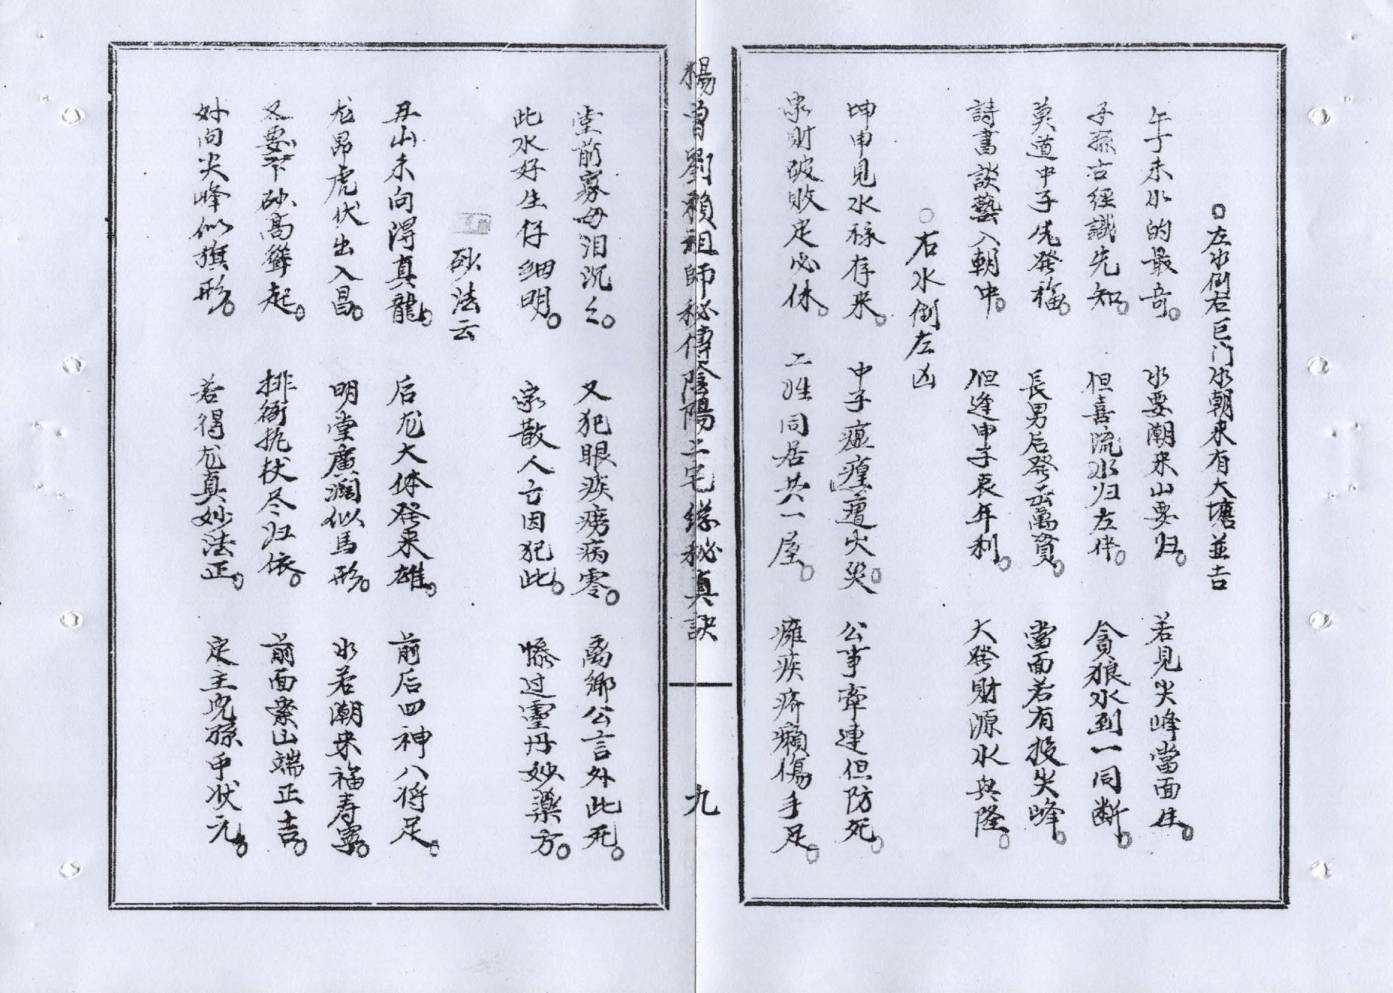 左水倒右巨门水朝来有大塘並吉
午子未水的最奇。水要潮来山要归。若見尖峰當面住。
子孫古經識先知。但喜流水归左伴。貪狼水到一同断。
莫道中子先發福。長男后發云萬資。當面若有投尖峰。
詩書談藝入朝中。但逢申子辰年利。大發財源水興隆。
右水倒左凶
坤申見水祿存来。中子瘟瘟遭火災。公事牽連但防死。
家財破敗定必休。二姓同居共一屋。癱疾癆癩傷手足。
楊曾劉賴祖師秘傳陰陽二宅綠秘真訣
九
堂前寡母泪沉々。又犯眼疾癆病零。离鄉公言外此死。
此水好生仔細明。家散人亡因犯此。惨过靈丹妙藥方。
砂法云
丑山未向得真龍。后龙大体發来雄。前后四神八将足。
龙昂虎伏出入昌。明堂廣濶似馬形。水若潮来福寿寧。
又要下砂高聳起。排衙執杖尽归依。前面案山端正吉。
好向尖峰似旗形。若得龙真妙法正。定主児孫中状元。